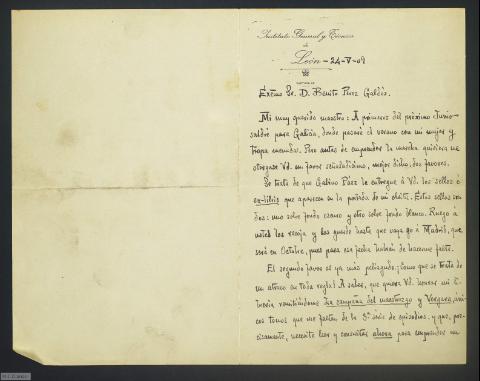 Instituto General y Técnico
de
León - 24-V-09
Excmo Sr. D. Benito Pérez Galdós.
Mi muy querido maestro: A primeros del próximo Junio
saldré para Galicia, donde pasaré el verano con mi mujer y
tropa menuda. Pero antes de emprender la marcha quisiera me
otorgase Vd. un favor señaladísimo, mejor dicho, dos favores.
Se trata de que Gabino Páez le entregue á Vd. los sellos ó
ex-libris que aparecen en la portada de mi obrita. Estos sellos son
dos: uno sobre fondo oscuro y otro sobre fondo blanco. Ruego á
usted los recoja y los guarde hasta que vaya yo á Madrid, que
será en Octubre, pues para esa fecha habrán de hacerme falta.
El segundo favor es ya más peliagudo. ¡Como que se trata de
un atraco en toda regla! A saber, que quiera Vd. honrar mi li-
brería remitiéndome La campaña del maestrazgo y Vergara, úni-
cos tomos que me faltan de la 3ª serie de episodios, y que, pre-
cisamente, necesito leer y consultar ahora para emprender un